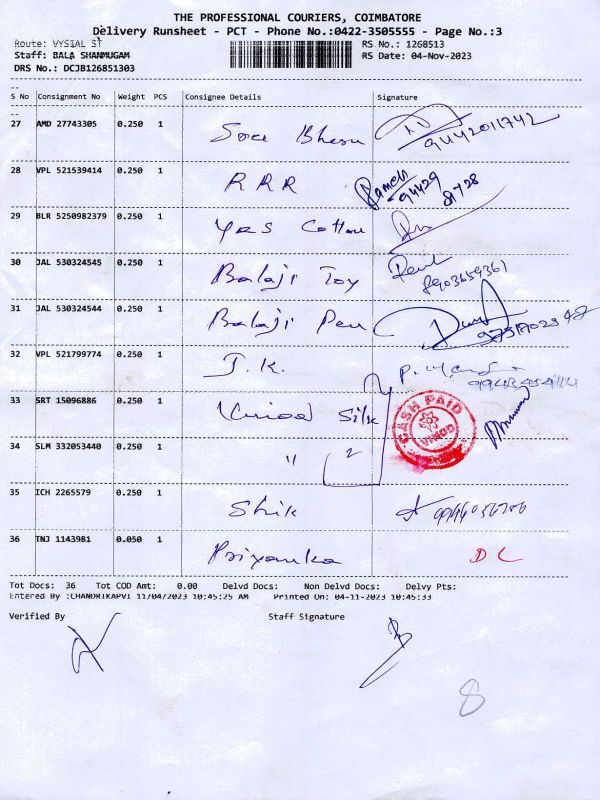 THE PROFESSIONAL COURIERS, COIMBATORE
Delivery Runsheet - PCT - Phone No.:0422-3505555 - Page No.:3
Route: VYSIAL ST RS No.: 1268513
Staff: BALA SHANMUGAM RS Date: 04-Nov-2023
DRS No.: DCJB126851303
S No Consignment No Weight PCS Consignee Details Signature
27 AMD 27743305 0.250 1 9442011742
28 VPL 521539414 0.250 1 RRR Ramesh
94429
29 BLR 5250982379 0.250 1 YRS Cotton
30 JAL 530324545 0.250 1 Balaji Toy
8903659361
31 JAL 530324544 0.250 1 Balaji Pen
32 VPL 521799774 0.250 1 J.K.
33 SRT 15096886 0.250 1 Silk CASH PAID
VINOD
34 SLM 332053440 0.250 1 " 2
35 ICH 2265579 0.250 1 Shik
36 TNJ 1143981 0.050 1 Priyanka DC
Tot Docs: 36 Tot COD Amt: 0.00 Delvd Docs: Non Delvd Docs: Delvy Pts:
Entered By :CHANDRIKAPVI 11/04/2023 10:45:25 AM Printed On: 04-11-2023 10:45:33
Verified By Staff Signature
8